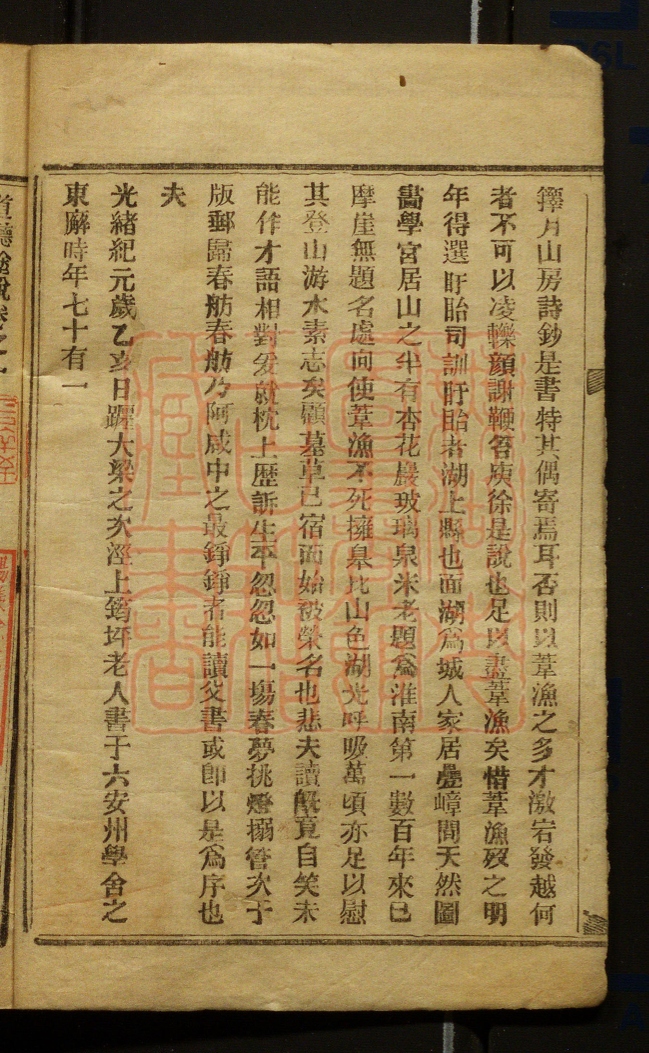 擇月山房詩鈔是書特其偶寄焉耳否則以葦漁之多才激宕發越何
者不可以凌轢顏謝鞭笞庾徐是說也足以盡葦漁矣惜葦漁歿之明
年得選盱眙司訓盱眙者湖上縣也面湖爲城人家居疊嶂間天然圖
畵學宮居山之半有杏花巖玻璃泉米老題爲淮南第一數百年來巳
摩崖無題名處向使葦漁不死擁臯比山色湖光呼吸萬頃亦足以慰
其登山游水素志矣顧墓草已宿而始被榮名也悲夫讀既竟自笑未
能作才語相對爰就枕上歷訴生平忽忽如一塲春夢挑燈搦管次于
版郵歸春舫春舫乃阿咸中之最錚錚者能讀父書或卽以是爲序也
夫
光緒紀元歲乙亥日躔大梁之次涇上筠坪老人書于六安州學舍之
東廨時年七十有一